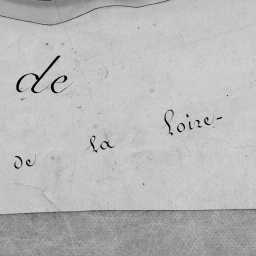 de
de la Loire-